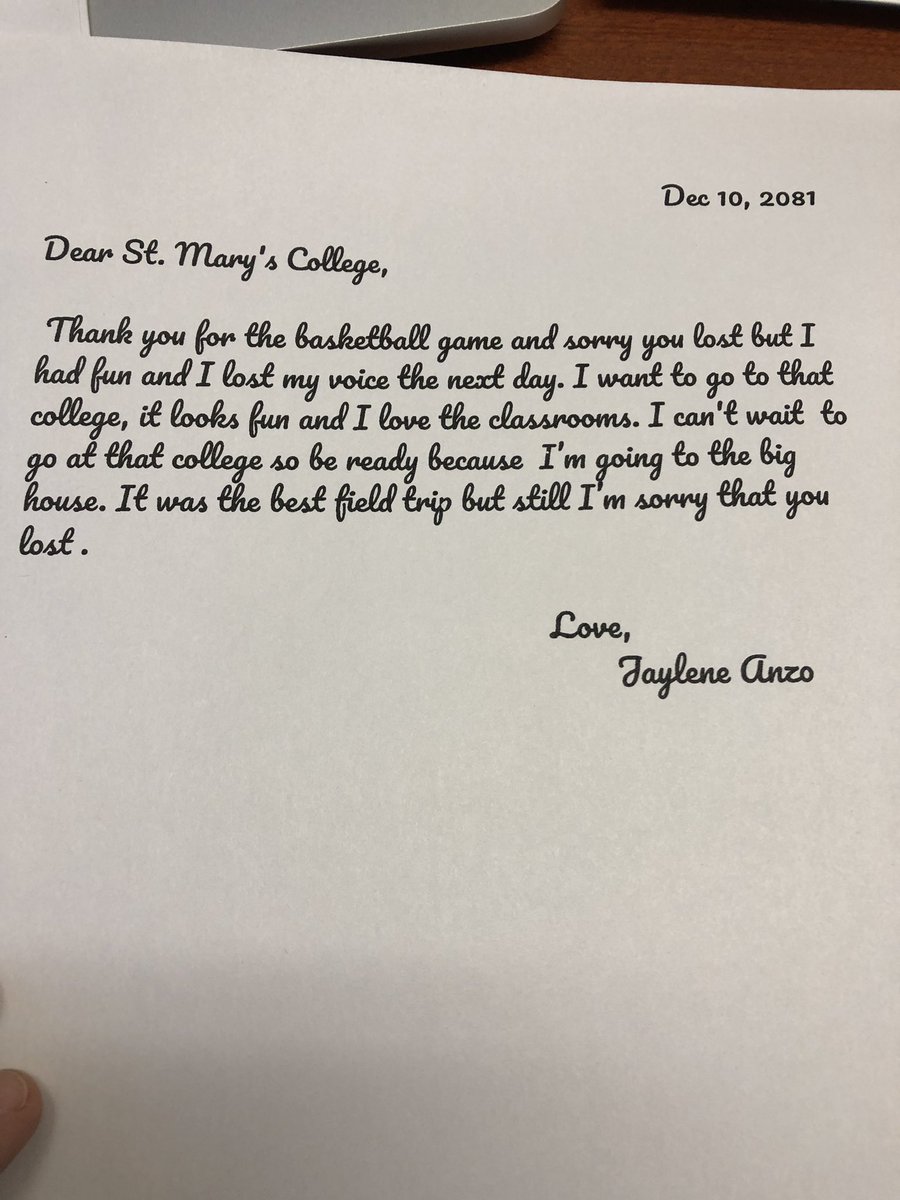 Dec 10, 2081
Dear St. Mary's College,
Thank you for the basketball game and sorry you lost but I
had fun and I lost my voice the next day. I want to go to that
college, it looks fun and I love the classrooms. I can't wait to
go at that college so be ready because I'm going to the big
house. It was the best field trip but still I'm sorry that you
lost.
Love,
Jaylene Anzo